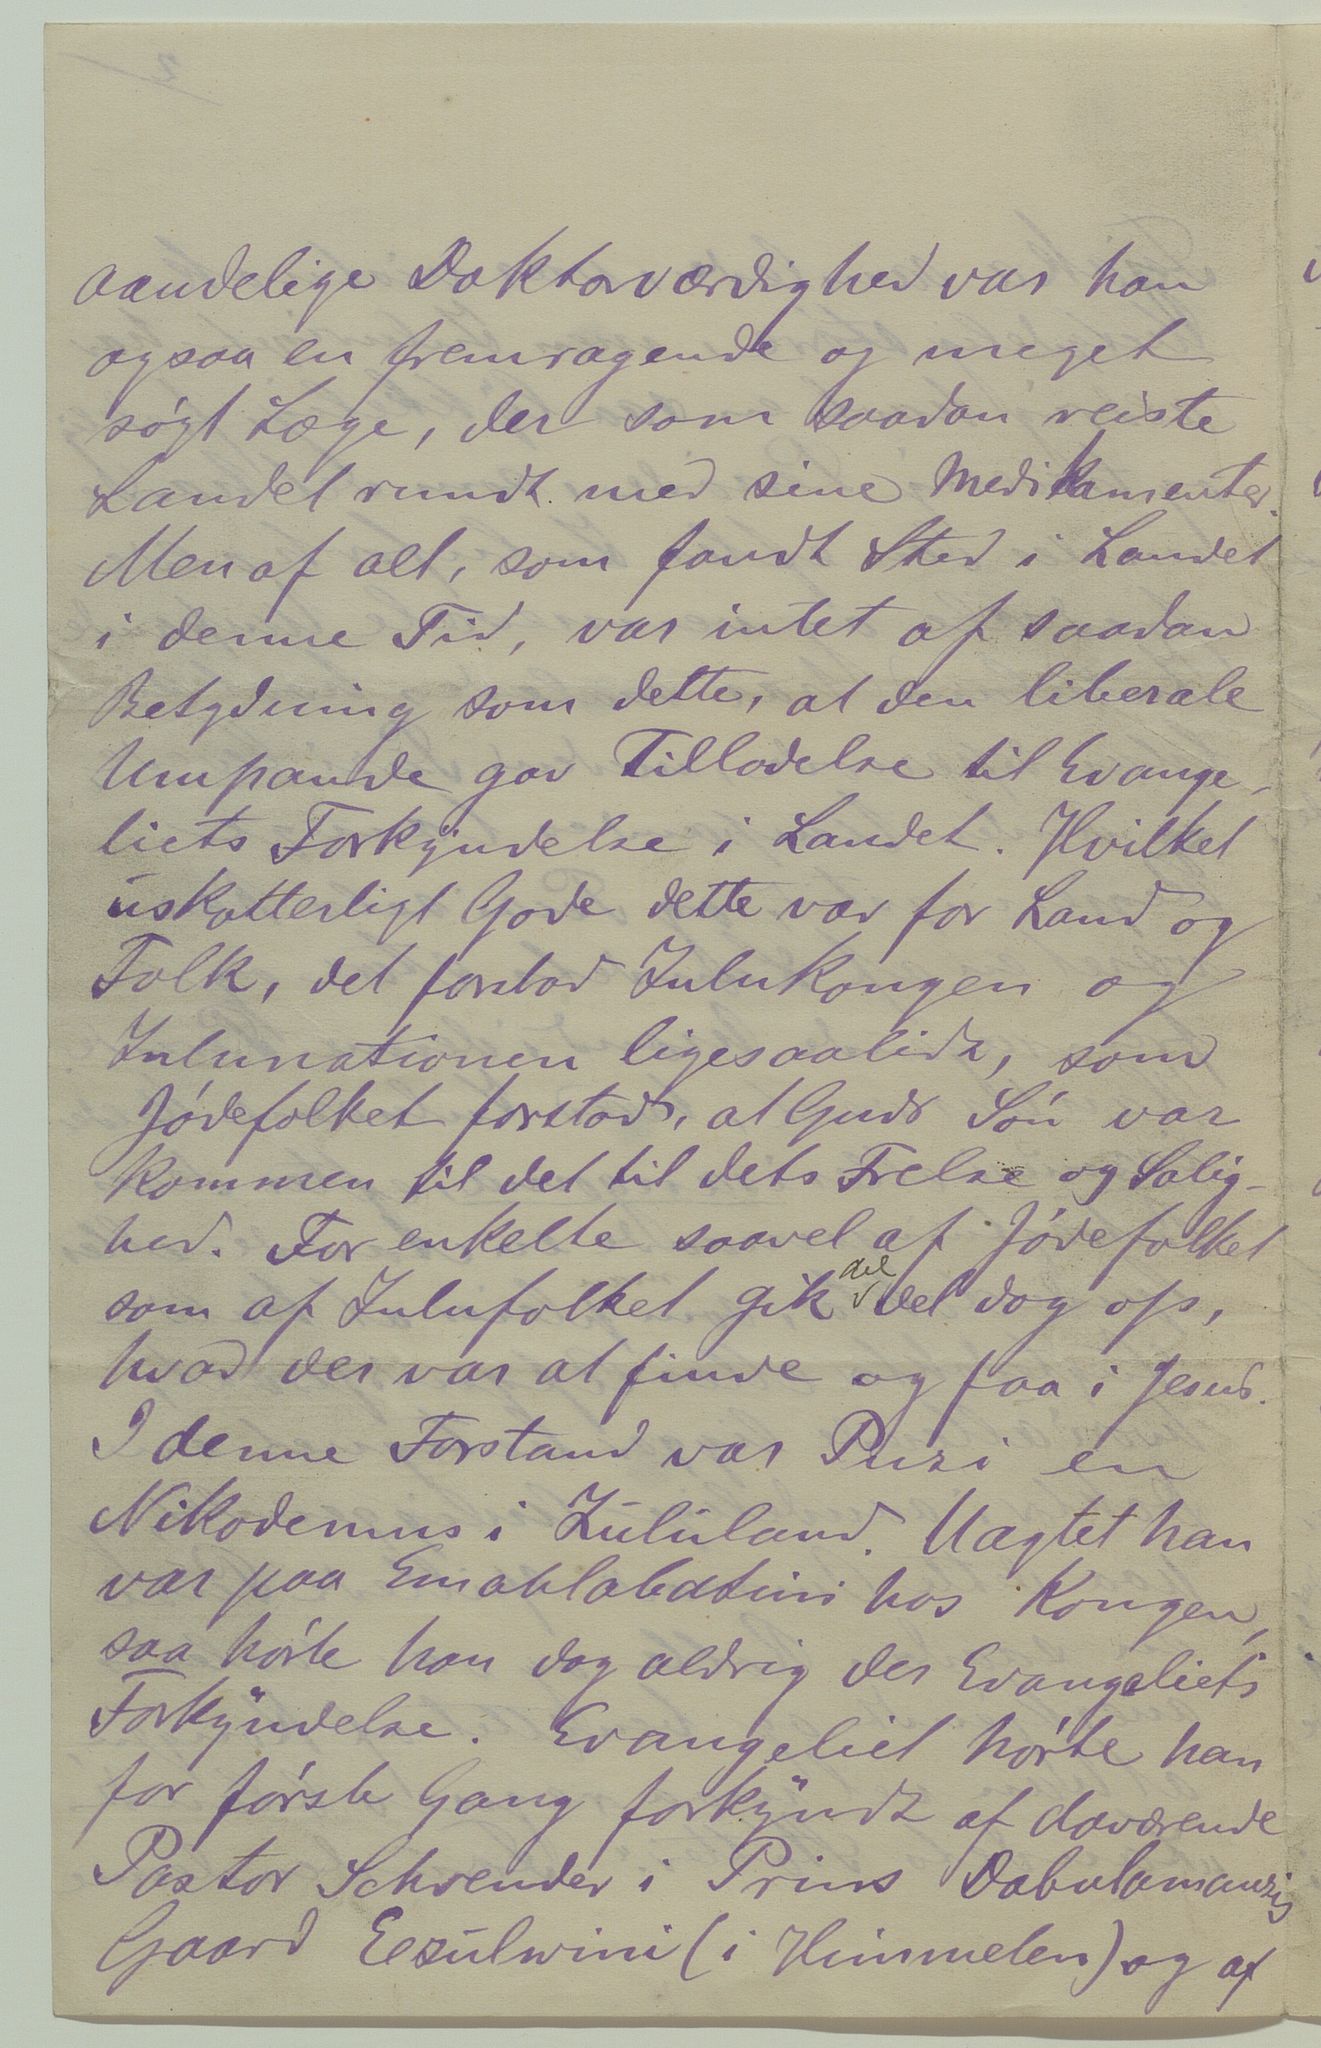 2
aandelige Doktorværdighed var han
ogsaa en fremragende og meget
søgt Læge, der som saadan reiste
Landet rundt med sine Medikamenter.
Men af alt, som fandt Sted i Landet
i denne Tid, var intet af saadan
Betydning som dette, at den liberale
Umpande gav Tilladelse til Evange-
liets Forkyndelse i Landet. Hvilket
uskatterligt Gode dette var for Land og
Folk, det forstod Zulukongen og
Zulunationen ligesaalidt, som
Jødefolket forstod, at Guds Søn var
kommen til det til dets Frelse og Salig-
hed. For enkelte saavel af Jødefolket
som af Zulufolket gik det del dog op,
hvad der var at finde og faa i Jesus.
I denne Forstand var Puzi en
Nikodemus i Zululand. Uagtet han
var paa Emahlabatini hos Kongen,
saa hørte han dog aldrig der Evangeliets
Forkyndelse. Evangeliet hørte han
for første Gang forkyndt af daværende
Pastor Schreuder i Prins Dabulamanzis
Gaard Eezulwini (i Himmelen) og af